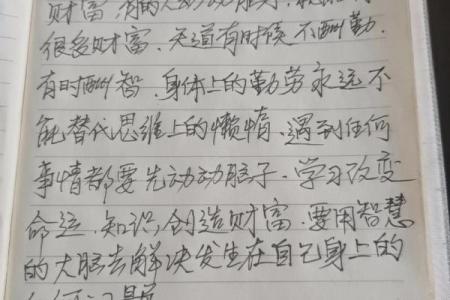 财富,有的人动动脑子,就
很多财富.天道有时候不酬勤.
有时酬智.身体上的勤劳永远不
能替代思维上的懒惰.遇到任何
事情都要先动动脑子.学习改变
命运.知识创造财富.要用智慧
的大脑去解决发生在自己身上的
任何问题